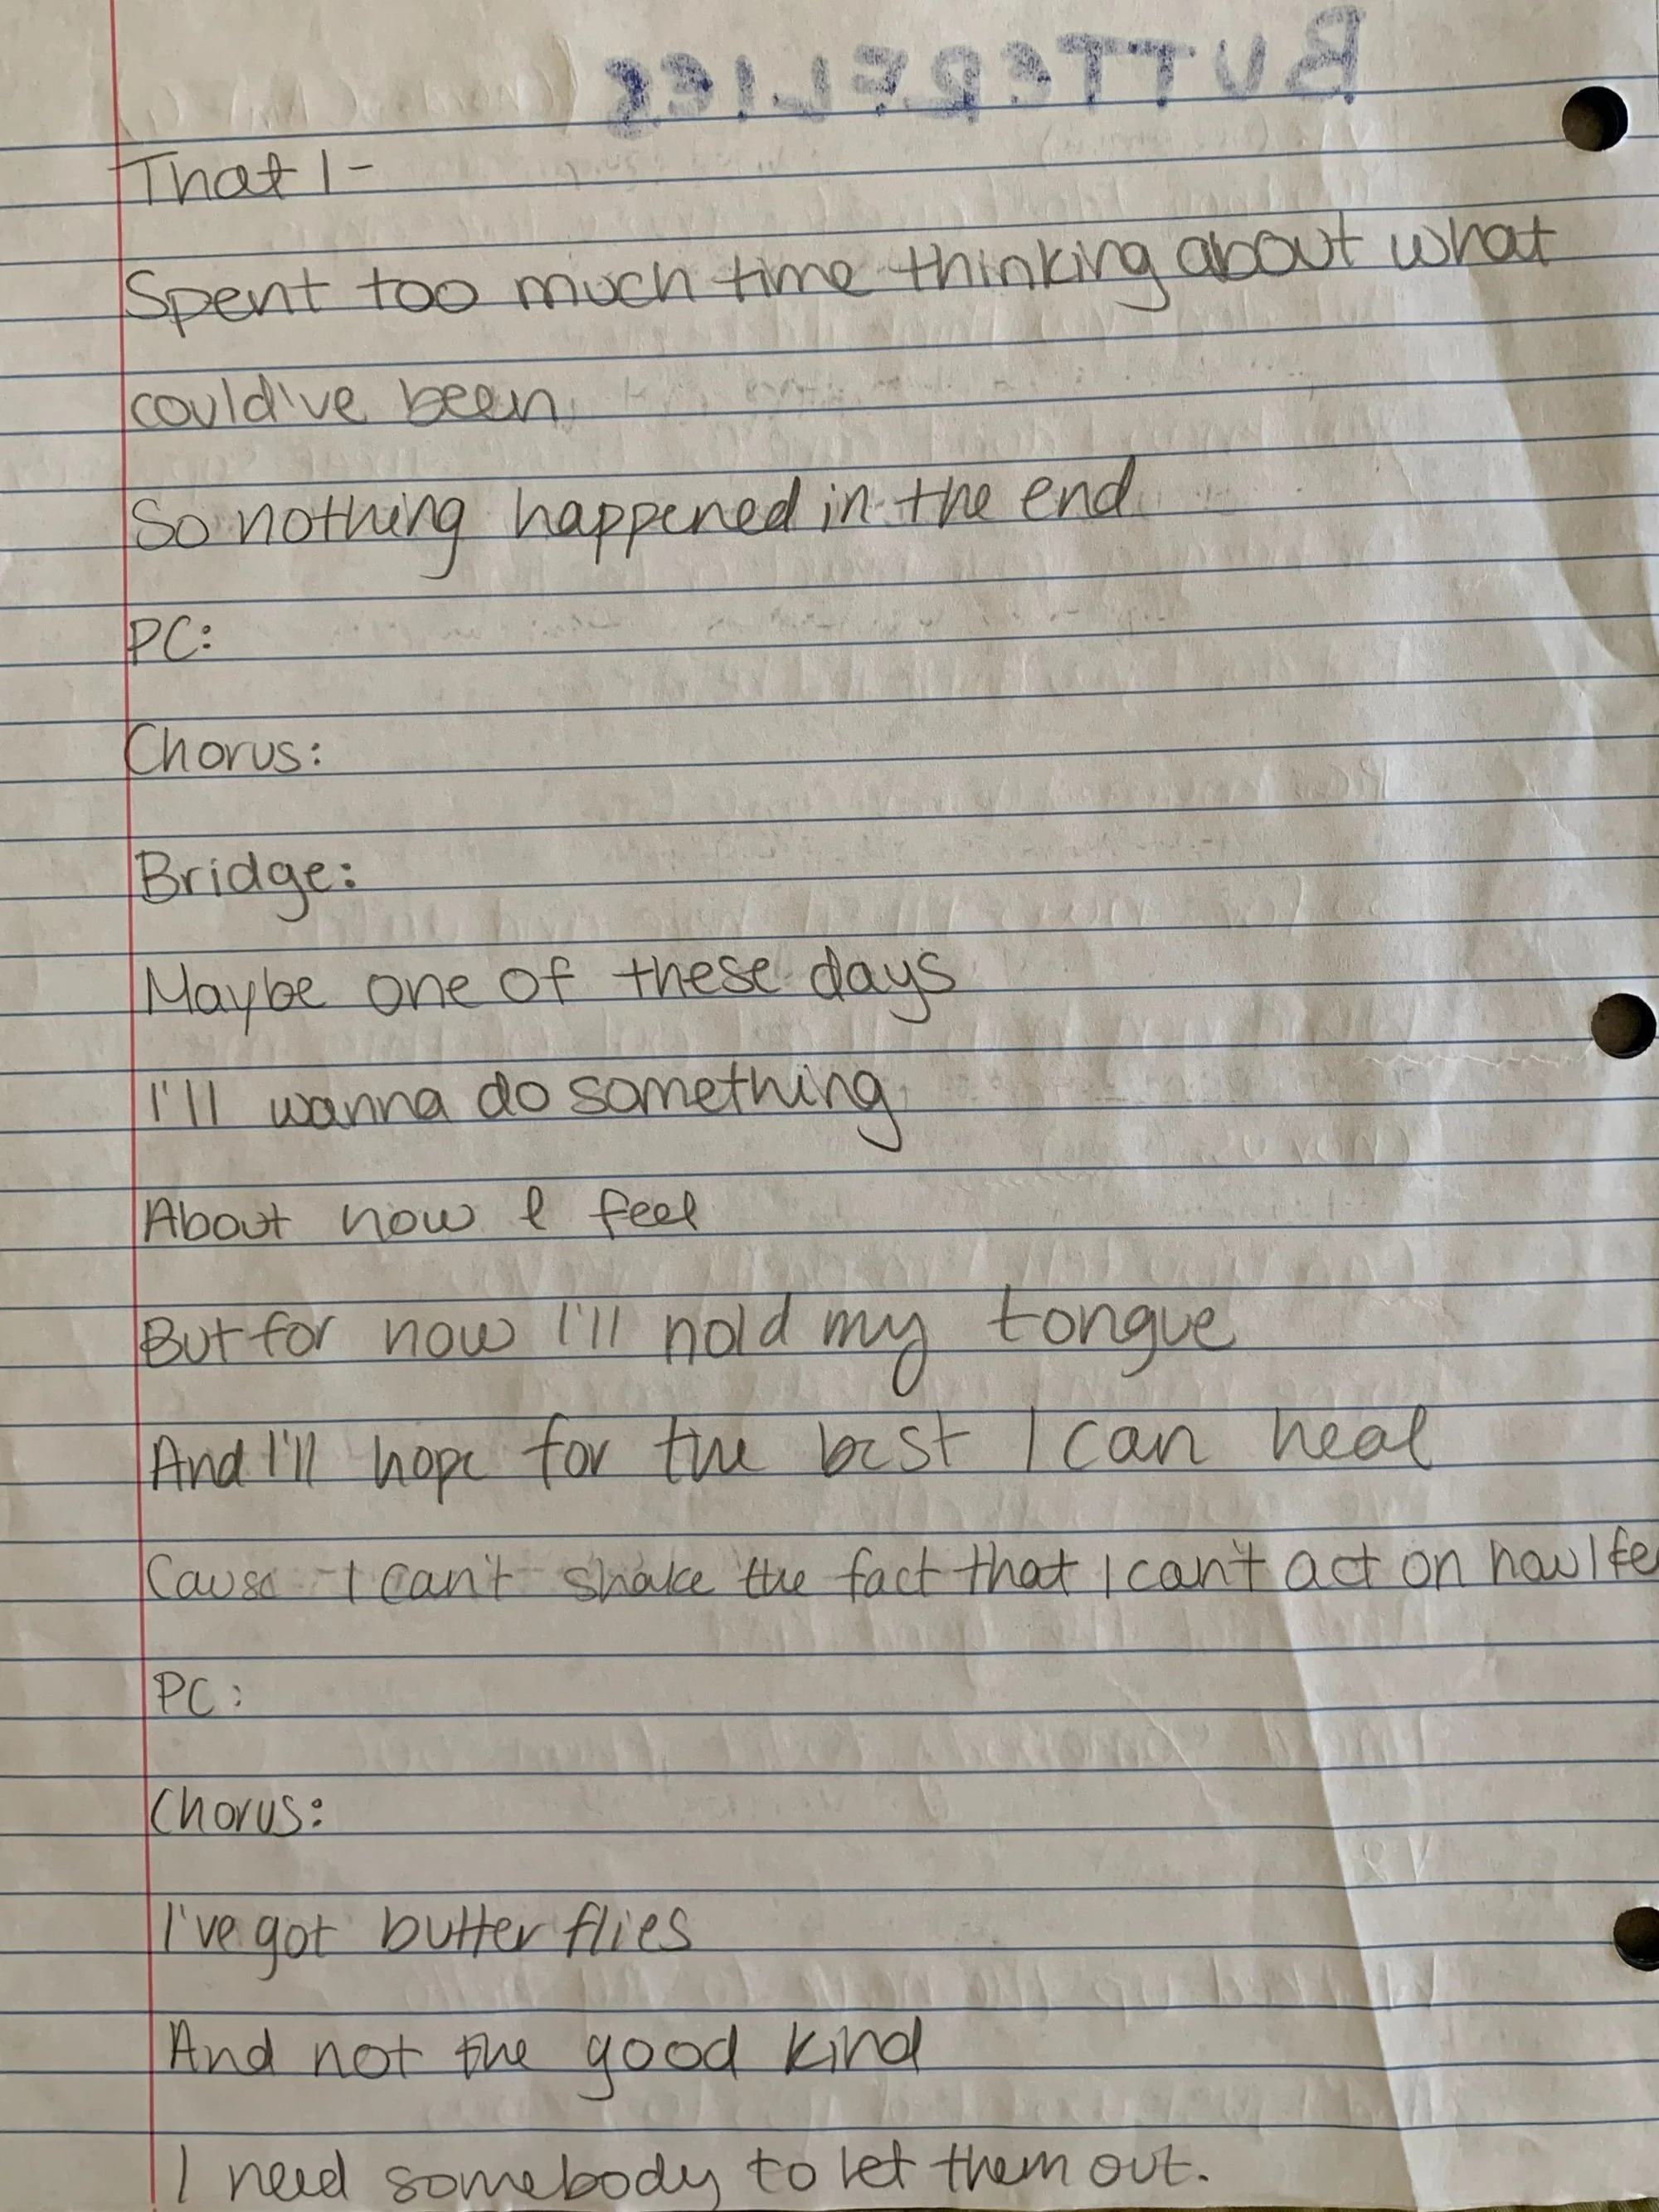 BUTTERFLIES
That I-
Spent too much time thinking about what
could've been
So nothing happened in the end
PC:
Chorus:
Bridge:
Maybe one of these days
I'll wanna do something
About how I feel
But for now I'll hold my tongue
And I'll hope for the best I can heal
Cause I can't shake the fact that I can't act on how I fe
PC:
Chorus:
I've got butterflies
And not the good kind
I need somebody to let them out.